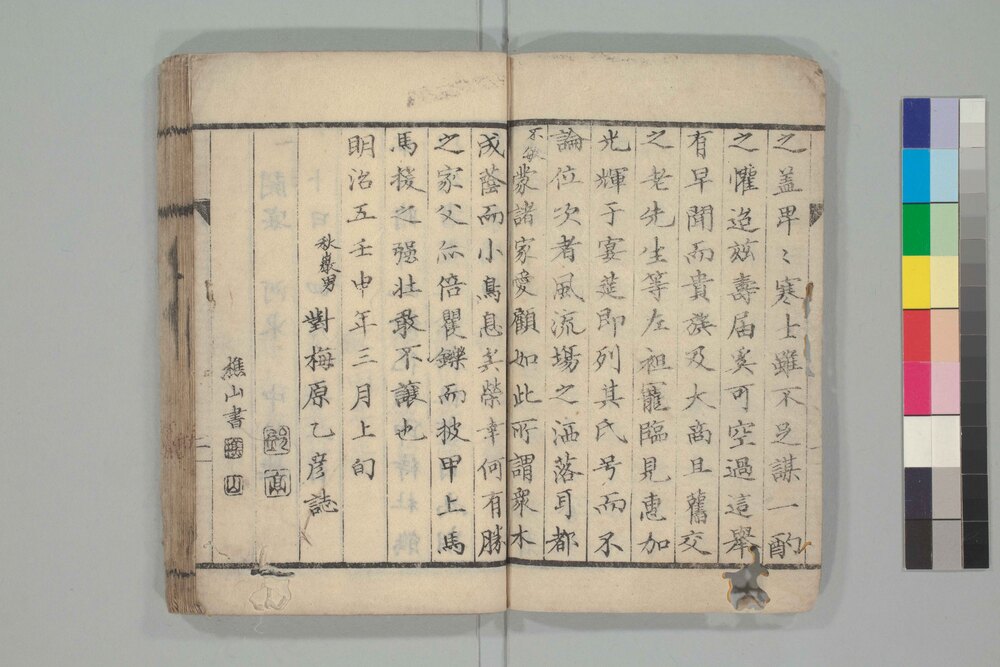 之盖卑〻寒士雖不足謀一酌
之懽迨兹壽届奚可空過這擧
有早聞而貴族及大商且舊交
之老先生等左袒寵臨見惠加
光輝于宴莚即列其氏号而不
論位次者風流場之洒落耳都
不敏蒙諸家愛顧如此所謂衆木
成蔭而小鳥息其榮幸何有勝
之家父亦倍矍鑠而披甲上馬
馬援之强壮敢不讓也
明治五壬申年三月上旬
秋巖男 對梅原乙彦誌
樵山書